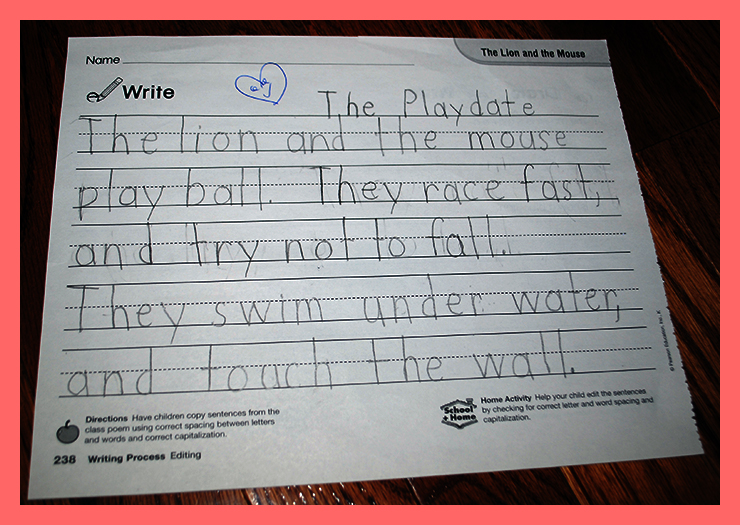 The Lion and the Mouse
Name
Write
The Playdate
The lion and the mouse
play ball. They race fast,
and try not to fall.
They swim under water,
and touch the wall.
Directions Have children copy sentences from the
class poem using correct spacing between letters
and words and correct capitalization.
238 Writing Process Editing
School + Home
Home Activity Help your child edit the sentences
by checking for correct letter and word spacing and
capitalization.
© Pearson Education, Inc., K